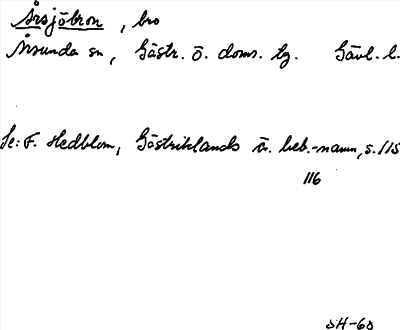 Årsjöbron, bro
Årsunda sn, Gästr. ö. doms. tg. Gävl. l.
Se: F. Hedblom, Gästriklands ä. beb.-namn, s. 115
116
SH-60